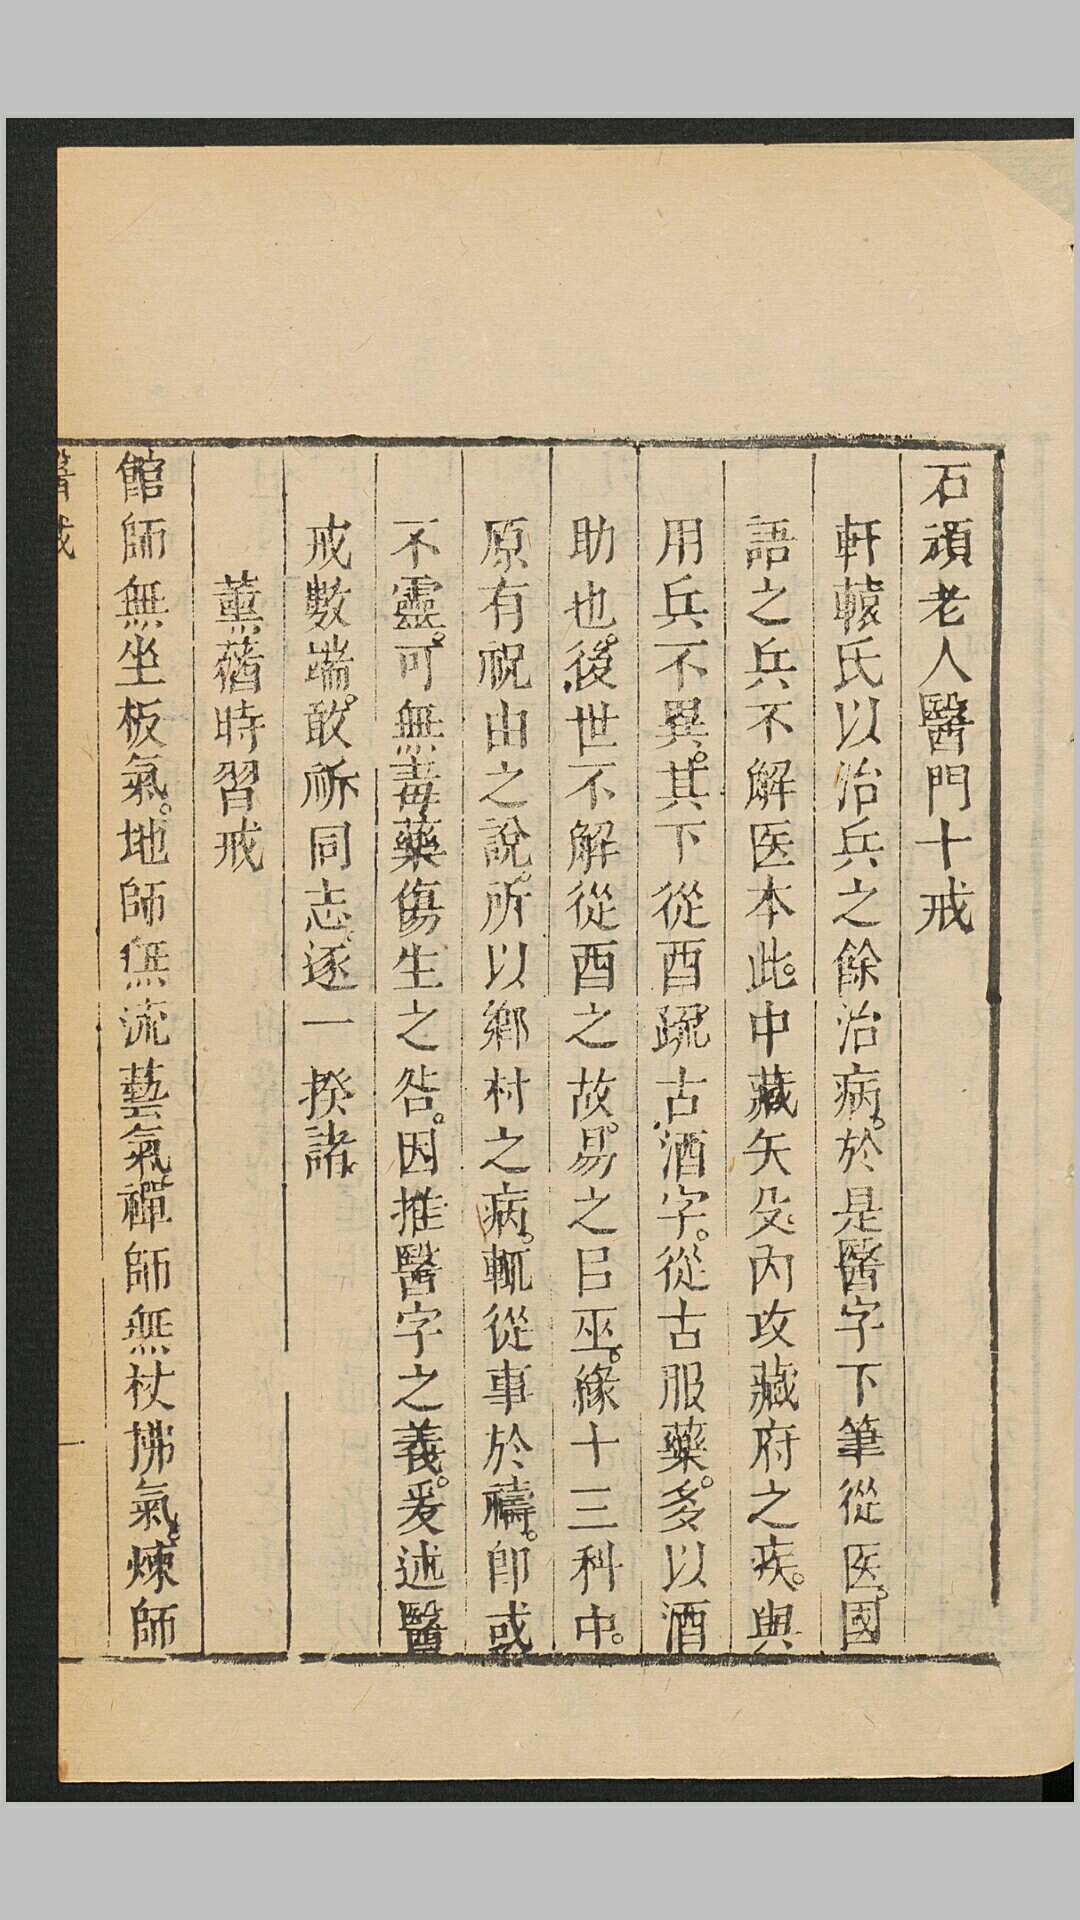 石頑老人醫門十戒
軒轅氏以治兵之餘治病。於是醫字下筆從医。國
語之兵不解医本此。中藏矢殳。內攻藏府之疾。與
用兵不異。其下從酉。疏古酒字。從古服藥。多以酒
助也。後世不解從酉之故。易之巳巫。緣十三科中。
原有祝由之說。所以鄉村之病。輒從事於禱。卽或
不靈。可無毒藥傷生之咎。因推醫字之義。爰述醫
戒數端。敢祈同志。逐一揆諸。
薰蕕時習戒
館師無坐板氣。地師無流藝氣。禪師無杖拂氣。煉師
醫戒
一